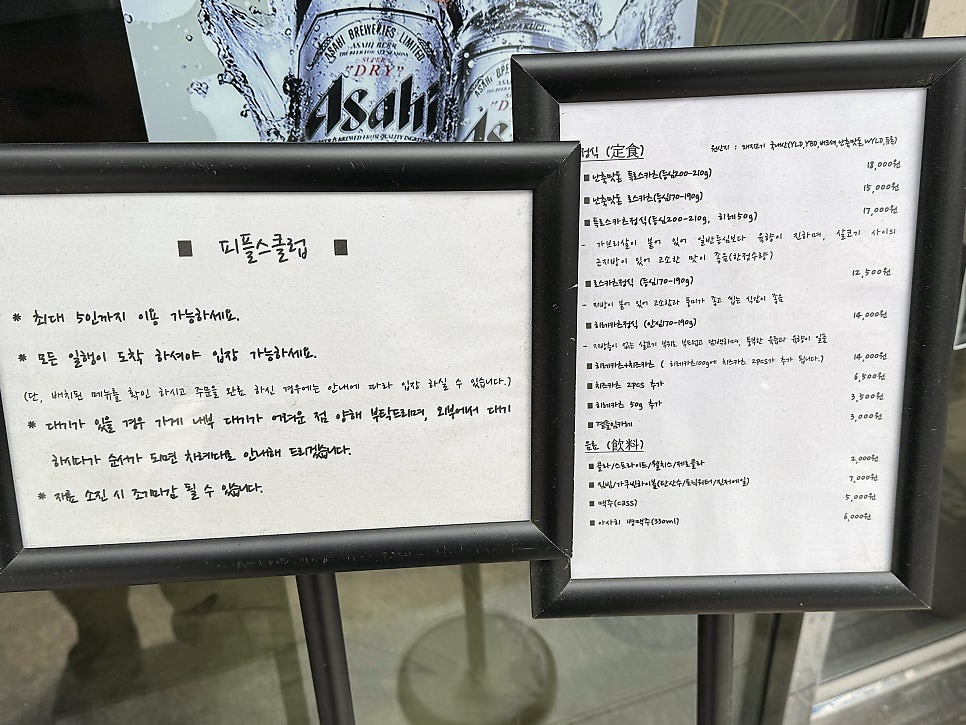 ASAHI BREWERIES LIMITED
ASAHI BEER
THE BEER FOR ALL SEASONS
SUPER
"DRY"
Asahi
BREWED FROM QUALITY INGREDIENTS
■ 피플스클럽 ■
* 최대 5인까지 이용 가능하세요.
* 모든 일행이 도착 하셔야 입장 가능하세요.
(단, 배치된 메뉴를 확인 하시고 주문을 완료 하신 경우에는 안내에 따라 입장 하실 수 있습니다.)
* 대기가 있을 경우 가게 내부 대기가 어려운 점 양해 부탁드리며, 외부에서 대기
하시다가 순서가 되면 차례대로 안내해 드리겠습니다.
* 재료 소진 시 조기마감 될 수 있습니다.
정식 (定食) 원산지 : 돼지고기 국내산(YLD,YBD,버크셔,난축맛돈,WYLD,듀록)
■ 난축맛돈 특로스카츠(등심200-210g) 18,000원
■ 난축맛돈 로스카츠(등심170-190g) 15,000원
■ 특로스카츠정식(등심200-210g, 히레50g) 17,000원
- 가브리살이 붙어 있어 일반등심보다 육향이 진하며, 살코기 사이의
근지방이 있어 고소한 맛이 좋음(한정수량)
■ 로스카츠정식 (등심170-190g) 12,500원
- 지방이 붙어 있어 고소함과 풍미가 좋고 씹는 식감이 좋음
■ 히레카츠정식 (안심170-190g) 14,000원
- 지방층이 없는 살코기 부위로 부드럽고 담백하며, 풍부한 육즙과 육향이 일품
■ 히레카츠+치즈카츠 ( 히레카츠100g에 치즈카츠 2pcs가 추가 됩니다.) 14,000원
■ 치즈카츠 2pcs 추가 6,500원
■ 히레카츠 50g 추가 3,500원
■ 곁들임카레 3,000원
음료 (飲料)
■ 콜라/스프라이트/웰치스/제로콜라 2,000원
■ 짐빔/가쿠빈하이볼(탄산수/토닉워터/진저에일) 7,000원
■ 맥주(cass) 5,000원
■ 아사히 병맥주(330ml) 6,000원